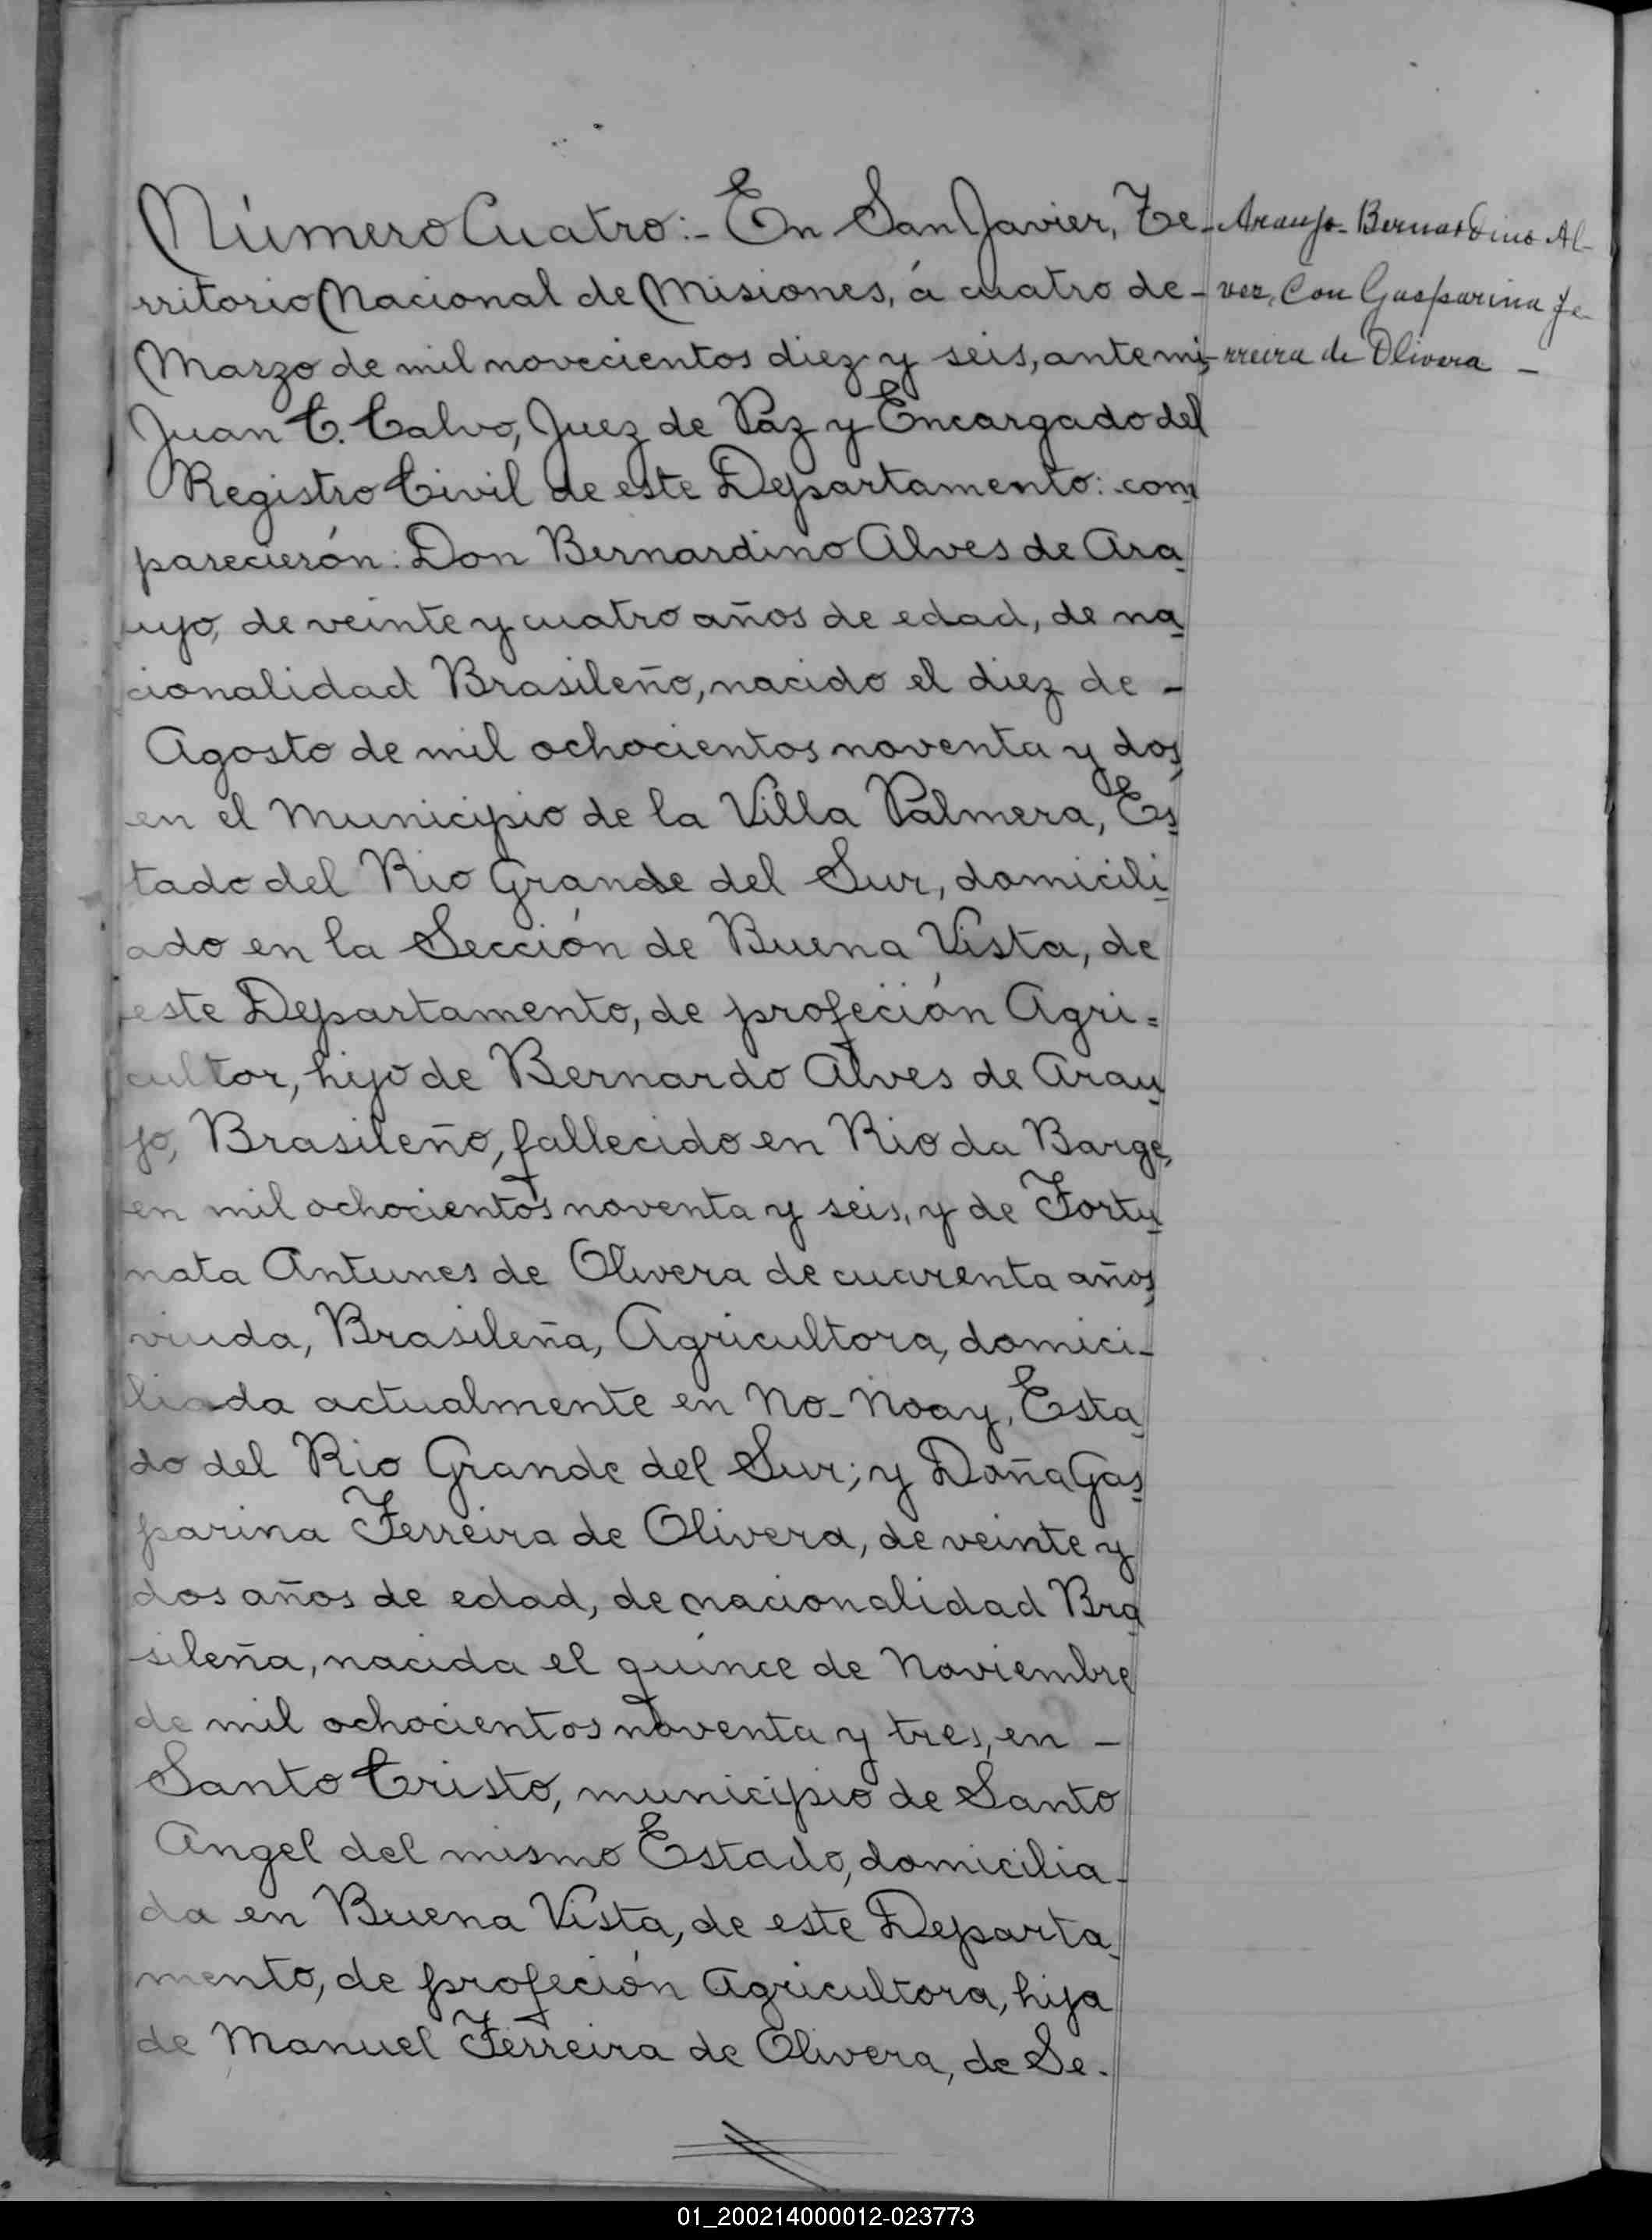 Número Cuatro:- En San Javier, Te-
rritorio Nacional de Misiones, á cuatro de-
Marzo de mil novecientos diez y seis, ante mi,
Juan C. Calvo, Juez de Paz y Encargado del
Registro Civil de este Departamento: com
parecierón: Don Bernardino Alves de Ara
ujo, de veinte y cuatro años de edad, de na
cionalidad Brasileño, nacido el diez de -
Agosto de mil ochocientos noventa y dos,
en el Municipio de la Villa Palmera, Es
tado del Rio Grande del Sur, domicili
ado en la Sección de Buena Vista, de
este Departamento, de profeción Agri=
cultor, hijo de Bernardo Alves de Arau
jo, Brasileño, fallecido en Rio da Barge,
en mil ochocientos noventa y seis, y de Fortu
nata Antunes de Olivera de cuarenta años,
viuda, Brasileña, Agricultora, domici-
liada actualmente en No-Noay, Esta
do del Rio Grande del Sur; y Doña Gas
parina Ferreira de Olivera, de veinte y
dos años de edad, de nacionalidad Bra
sileña, nacida el quince de Noviembre
de mil ochocientos noventa y tres, en -
Santo Cristo, municipio de Santo
Angel del mismo Estado, domicilia-
da en Buena Vista, de este Departa
mento, de profeción Agricultora, hija
de Manuel Ferreira de Olivera, de Se-
Araujo- Bernardino Al-
vez, Con Gasparina Fe-
rreira de Olivera -
01_200214000012-023773